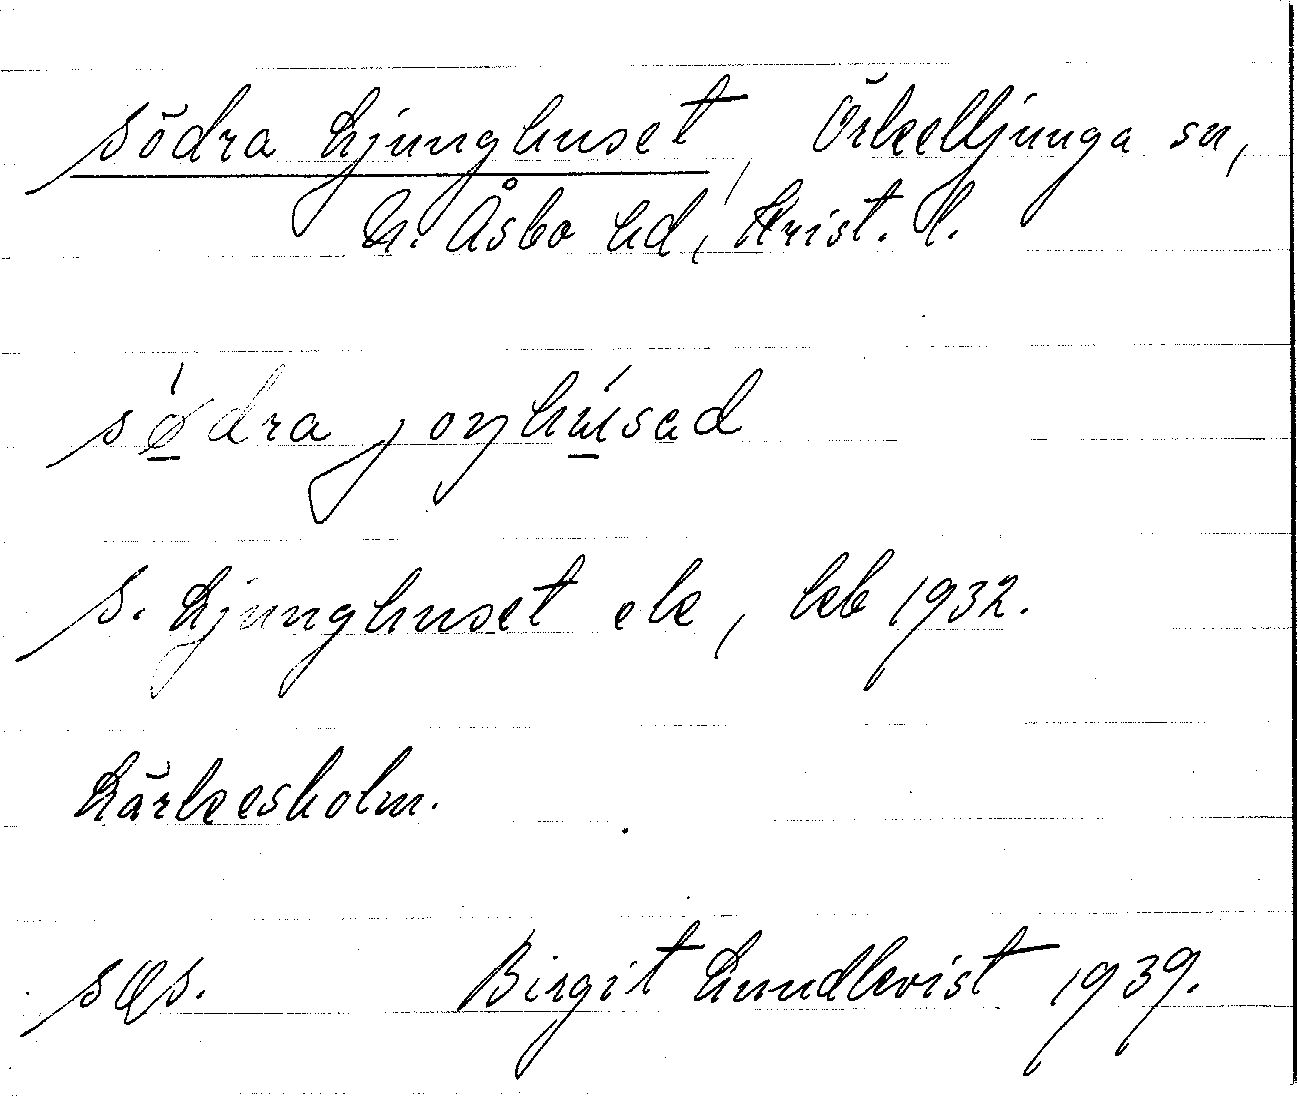 södra Ljunghuset, Örkelljunga sn,
N. Åsbo hd, Krist. l.
sødra joŋhúsəd
S. Ljunghuset ek, kb 1932.
Lärkesholm.
sgs. Birgit Lundkvist 1939.